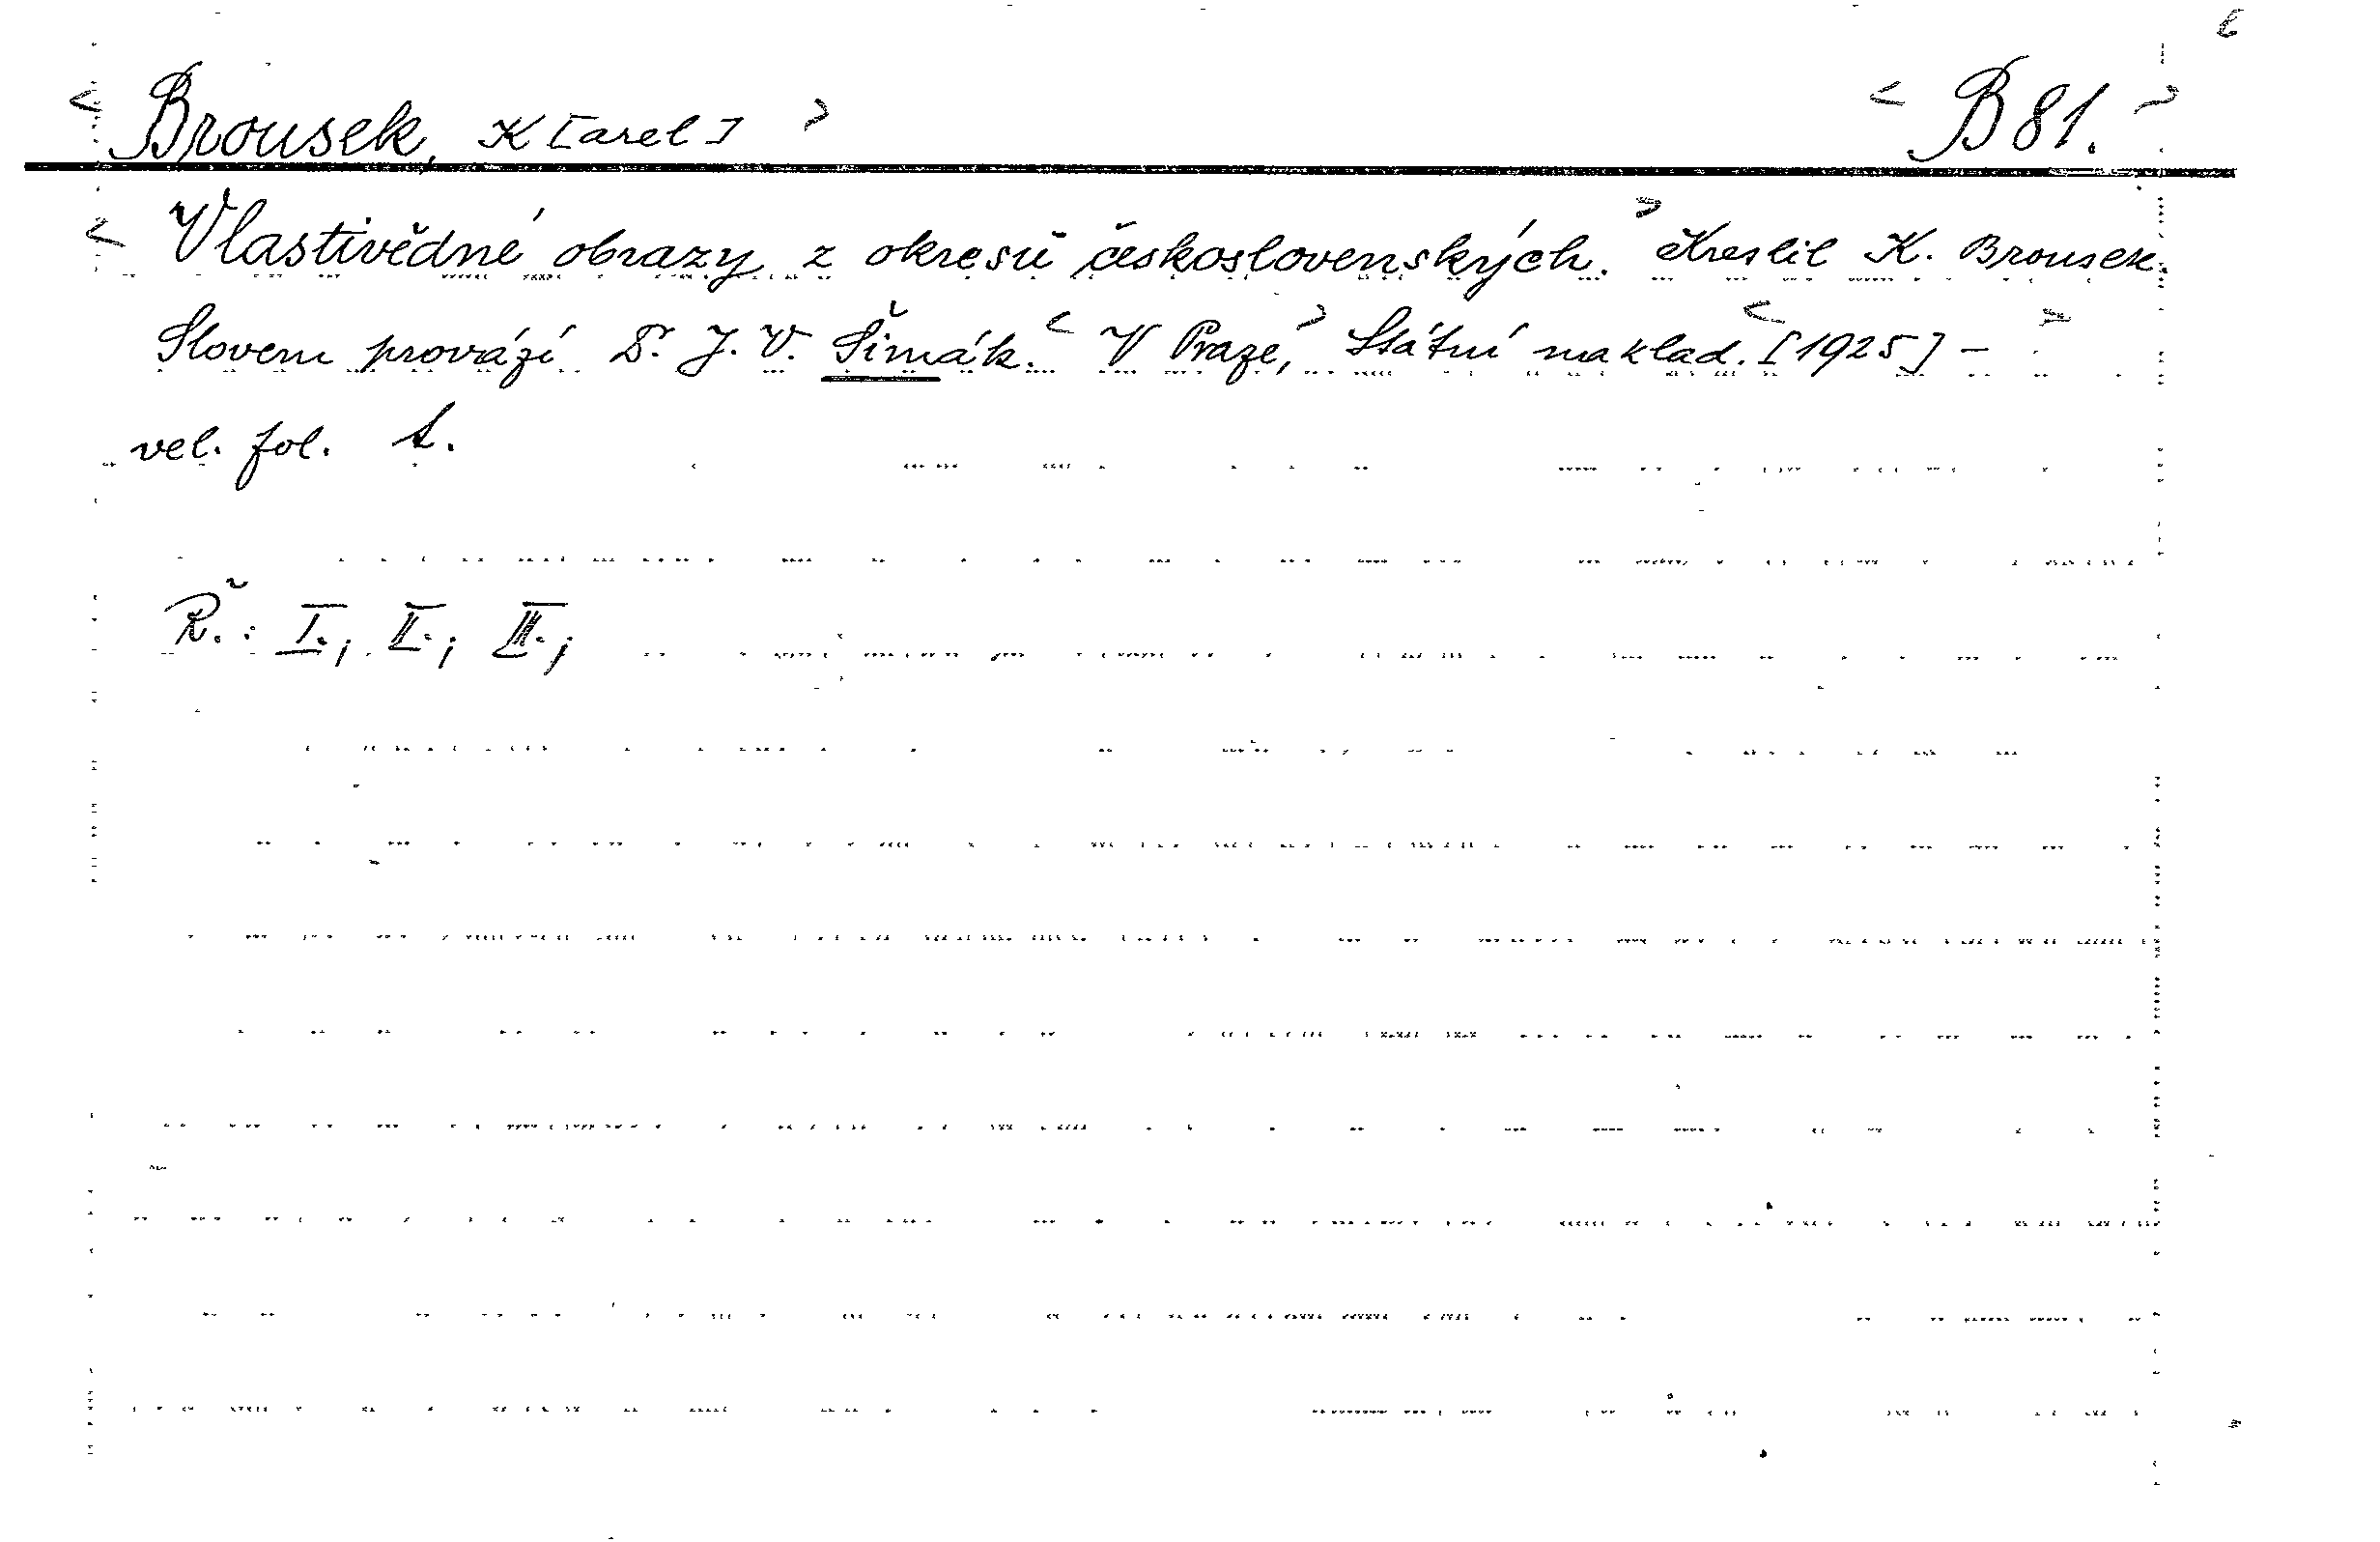 < Brousek, K[arel] > < B 81. >
< Vlastivědné obrazy z okresů československých. > Kreslil K. Brousek.
Slovem provází Dr. J. V. Šimák. < V Praze, > Státní naklad. < [1925] – >
vel. fol. t.
Ř.: I.; II.; III.;